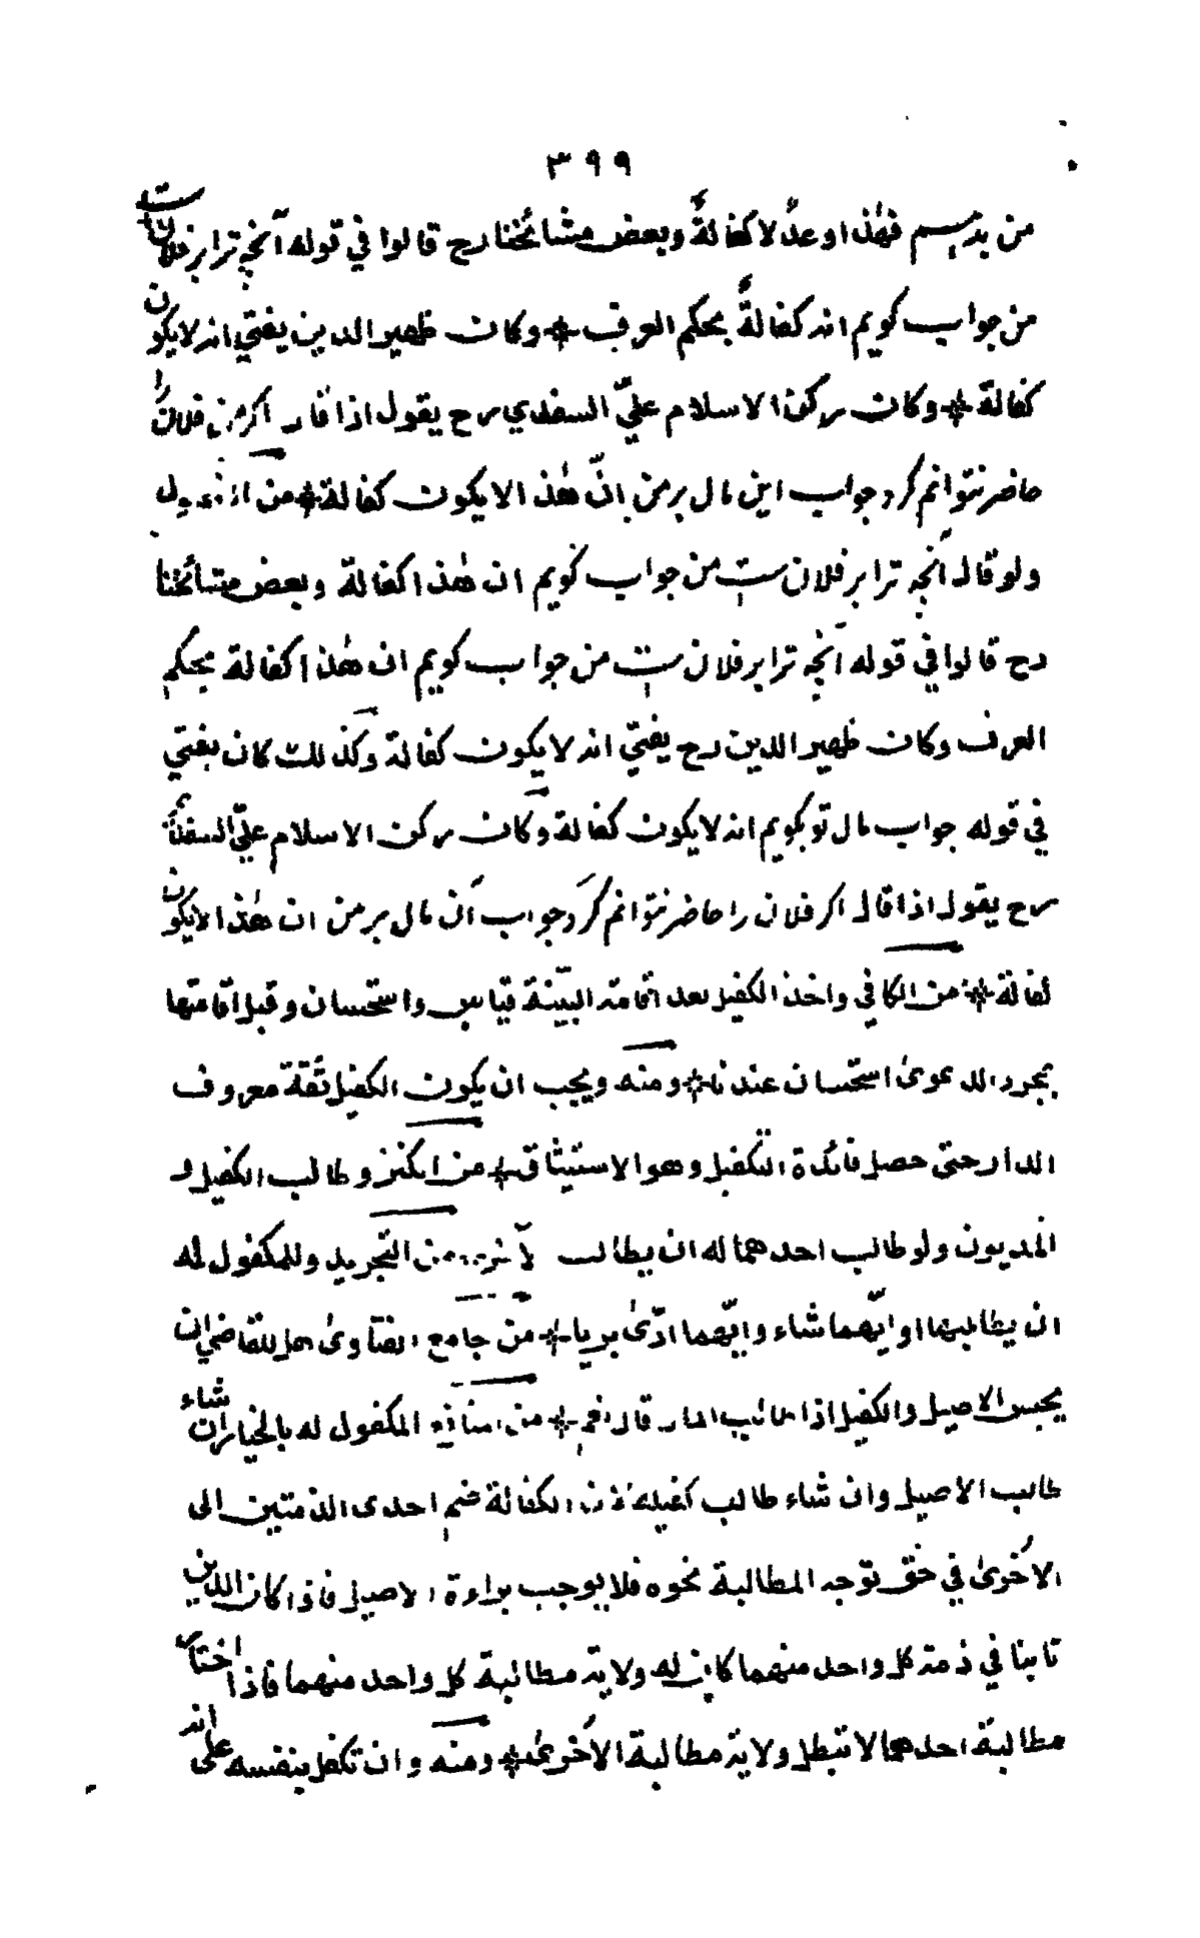 ٣٩٩
من بدہم فهذا وعدٌ لا كفالةٌ وبعض مشائخنا رح قالوا في قوله آنچه ترا بر فلانست
من جواب كويم انه كفالةٌ بحكم العرف * وكان ظهير الدين يفتي انه لا يكون
كفالة * وكان ركن الاسلام عليّ السغدي رح يقول اذا قال اكر من فلان را
حاضر نتوانم كرد جواب اين مال بر من انّ هٰذا لا يكون كفالة * من
ولو قال آنچه ترا بر فلان ست من جواب كويم ان هٰذا كفالة وبعض مشائخنا
رح قالوا في قوله آنچه ترا بر فلان ست من جواب كويم ان هٰذا كفالة بحكم
العرف وكان ظهير الدين رح يفتيّ انه لا يكون كفالة وكذلك كان يفتي
في قوله جواب مال تو بكويم انه لا يكون كفالة وكان ركن الاسلام عليّ السغديّ
رح يقول اذا قال اكر فلان را حاضر نتوانم كرد جواب آن مال بر من ان هٰذا لا يكون
كفالة * من الكافي واخذ الكفيل بعد اقامته البيّنة قياس واستحسان وقبل اقامتها
بمجرد الدعوىٰ استحسان عندنا * ومنه ويجب ان يكون الكفيل ثقة معروف
الدار حتى حصل فائدة التكفيل وهو الاستيثاق * من الكنز وطالب الكفيل و
المديون ولو طالب احدهما له ان يطالب الآخر من التجريد وللمكفول له
ان يطالبهما او ايّهما شاء وايّهما ادّىٰ بريا * من جامع الفتاوىٰ هل للقاضي ان
يحبس الاصيل والكفيل اذا طالب المال قال نعم * من المكفول له بالخيار ان شاء
طالب الاصيل وان شاء طالب كفيله لان الكفالة ضم احدى الذمتين الى
الاخرىٰ في حق توجه المطالبة نحوه فلا يوجب براءة الاصيل فاذا كان الدين
ثابتا في ذمة كل واحد منهما كان له ولاية مطالبة كل واحد منهما فاذا اختار
مطالبة احدهما لا تبطل ولاية مطالبة الاخرىٰ * ومنه وان تكفل بنفسه على انه